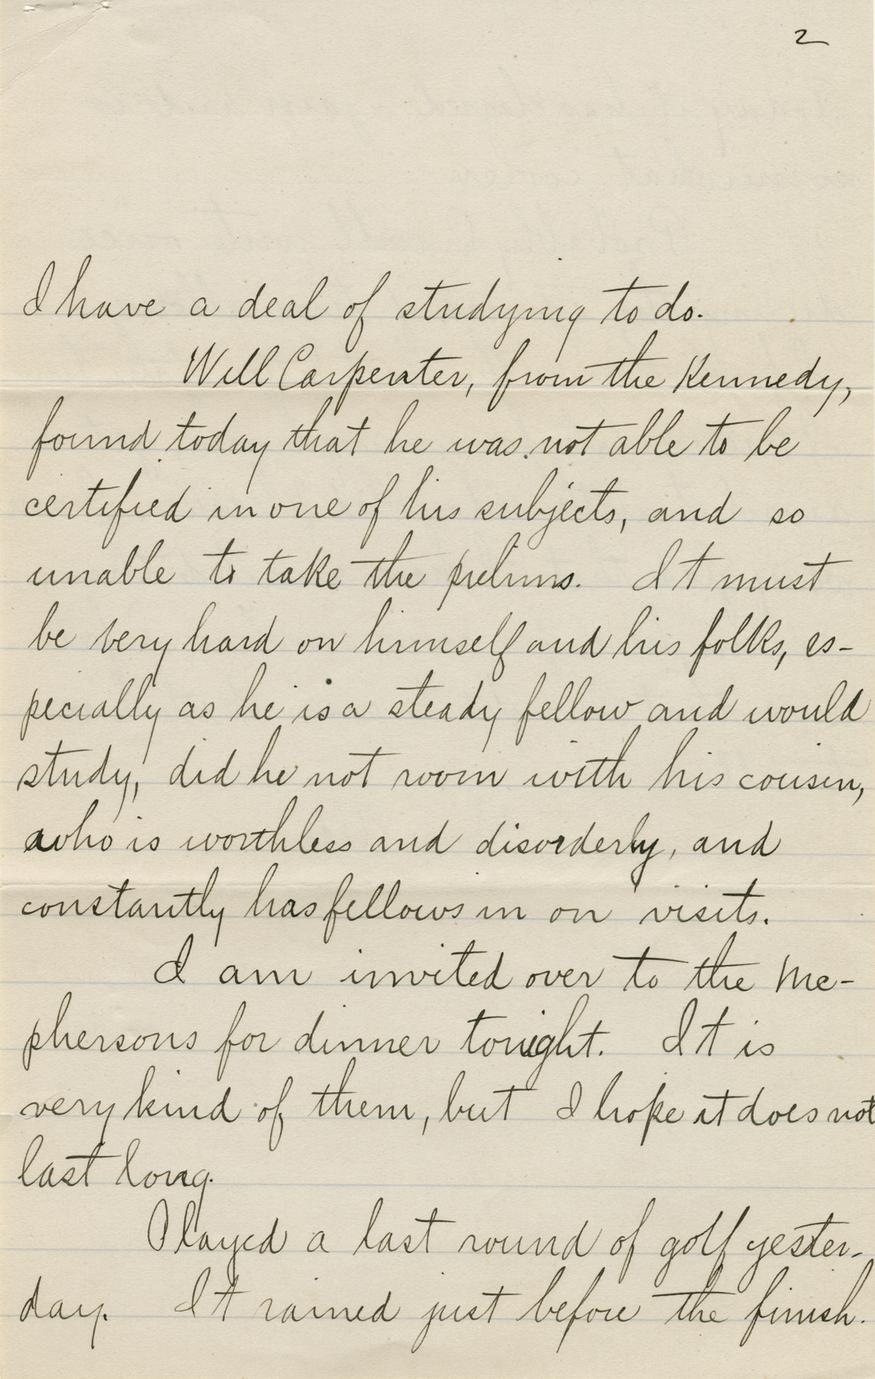 2
I have a deal of studying to do.
Will Carpenter, from the Kennedy,
found today that he was not able to be
certified in one of his subjects, and so
unable to take the prelims. It must
be very hard on himself and his folks, es-
pecially as he is a steady fellow and would
study, did he not room with his cousin,
who is worthless and disorderly, and
constantly has fellows in on visits.
I am invited over to the Mc-
phersons for dinner tonight. It is
very kind of them, but I hope it does not
last long.
Played a last round of golf yester-
day. It rained just before the finish.